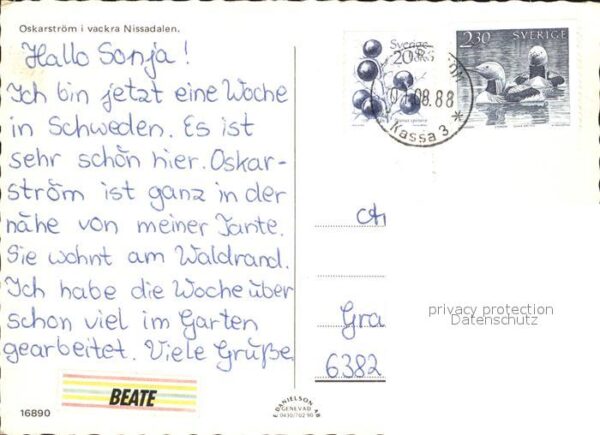 Oskarström i vackra Nissadalen.
Hallo Sonja!
Ich bin jetzt eine Woche
in Schweden. Es ist
sehr schön hier. Oskar-
ström ist ganz in der
nähe von meiner Tante.
Sie wohnt am Waldrand.
Ich habe die Woche über
schon viel im Garten
gearbeitet. Viele Grüße
BEATE
16890
Sverige
20
2.30 SVERIGE
08.88
Kassa 3 *
Gra
6382
privacy protection
Datenschutz
E. DANIELSON AB
GENEVAD
0430/702 90